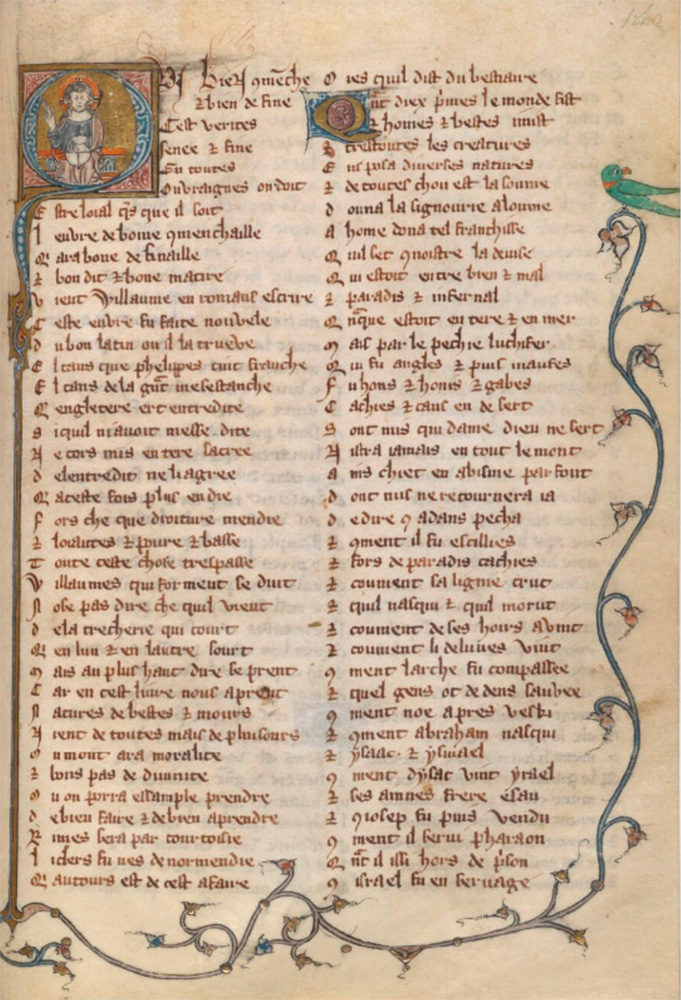 Ki bien 9mēche
⁊ bien define
C'est verites
senee ⁊ fine
En toutes
Ouvraignes on doit
E stre loial q̄s que il soit
l euvre de boine 9menchaille
Q ara boue definaille
⁊ bon dit ⁊ bone matire
v ieut Willaume en romans escrire
C este euvre fu faite nouvele
d u bon latin ou il la trueve
E l tans que phelippes tint franche
E l tans de la ḡnt mesestanche
Q engletere ert entredite
S i quil ni avoit messe dite
N e cors mis en tere sacree
d elentredit ne li agree
Q a ceste fois plus en die
f ors che que droiture mendie
⁊ loiautes ⁊ poure ⁊ basse
T oute ceste chose trespasse
W illaumes qui forment se diut
N ose pas dire che quil vieut
d e la trecherie qui court
Q en lun ⁊ en lautre sourt
M ais au plus haut dire se prent
C ar en cest livre nous aprent
N atures de bestes ⁊ mours
N ient de toutes mais de pluisours
O u mout ara moralite
⁊ bons pas de divinite
O u on porra essample prendre
d e bien faire ⁊ de bien aprendre
R imes sera par courtoisie
l i clers fu nes de normendie
Q autours est de cest afaire
O ies quil dist du bestiaire
Qn̄t diex p̄mes le monde fist
⁊ homes ⁊ bestes i mist
⁊ trestoutes les creatures
E t posa diverses natures
⁊ de toutes chou est la soume
d ouna la signourie a loume
A home dona tel franchise
Q uil set 9noistre la devise
Q ui estoit entre bien ⁊ mal
⁊ paradis ⁊ infernal
Q nq̄ue estoit en tere ⁊ en mer
M ais par le pechie luchifer
Q ui fu angles ⁊ puis maufes
f u hons ⁊ honis ⁊ gabes
C achies ⁊ caus en desert
S ont nus qui dame dieu ne sert
N istra iamais en tout le mont
A ins chiet en abisme parfont
d ont nus ne retournera ia
d e dire 9 adans pecha
⁊ 9ment il fu escillies
⁊ fors de paradis cachies
⁊ coument sa lignie crut
⁊ quil nasqui ⁊ quil morut
⁊ coument de ses hoirs avint
⁊ coument li deluives vint
9 ment larche fu compassee
⁊ quel gens ot dedens sauvee
9 ment noe apres veski
⁊ 9ment abraham nasqui
⁊ ysaac · ⁊ ysmael
9 ment dysac vint yrael
⁊ ses ainnes frere esau
⁊ 9 iosep fu puis vendu
9 ment il servi pharaon
Q n̄t il issi hors de p̄son
9 israel fu en servage